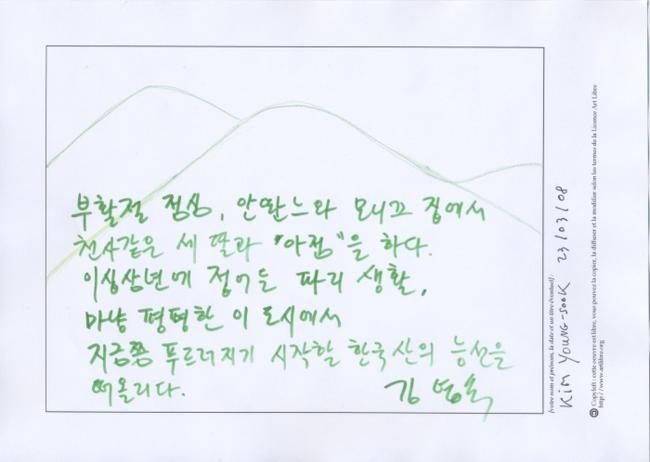 부활절 점심, 안딴느와 모니끄 집에서
천사같은 세 딸과 "아점"을 하다.
이십삼년에 접어든 파리 생활,
마냥 평평한 이 도시에서
지금쯤 푸르러지기 시작할 한국산의 능선을
떠올리다. 김영숙
(votre nom et prénom, la date et un titre éventuel) :
KIM YOUNG-SOOK 23/03/08
Copyleft : cette oeuvre est libre, vous pouvez la copier, la diffuser et la modifier selon les termes de la Licence Art Libre
http://www.artlibre.org